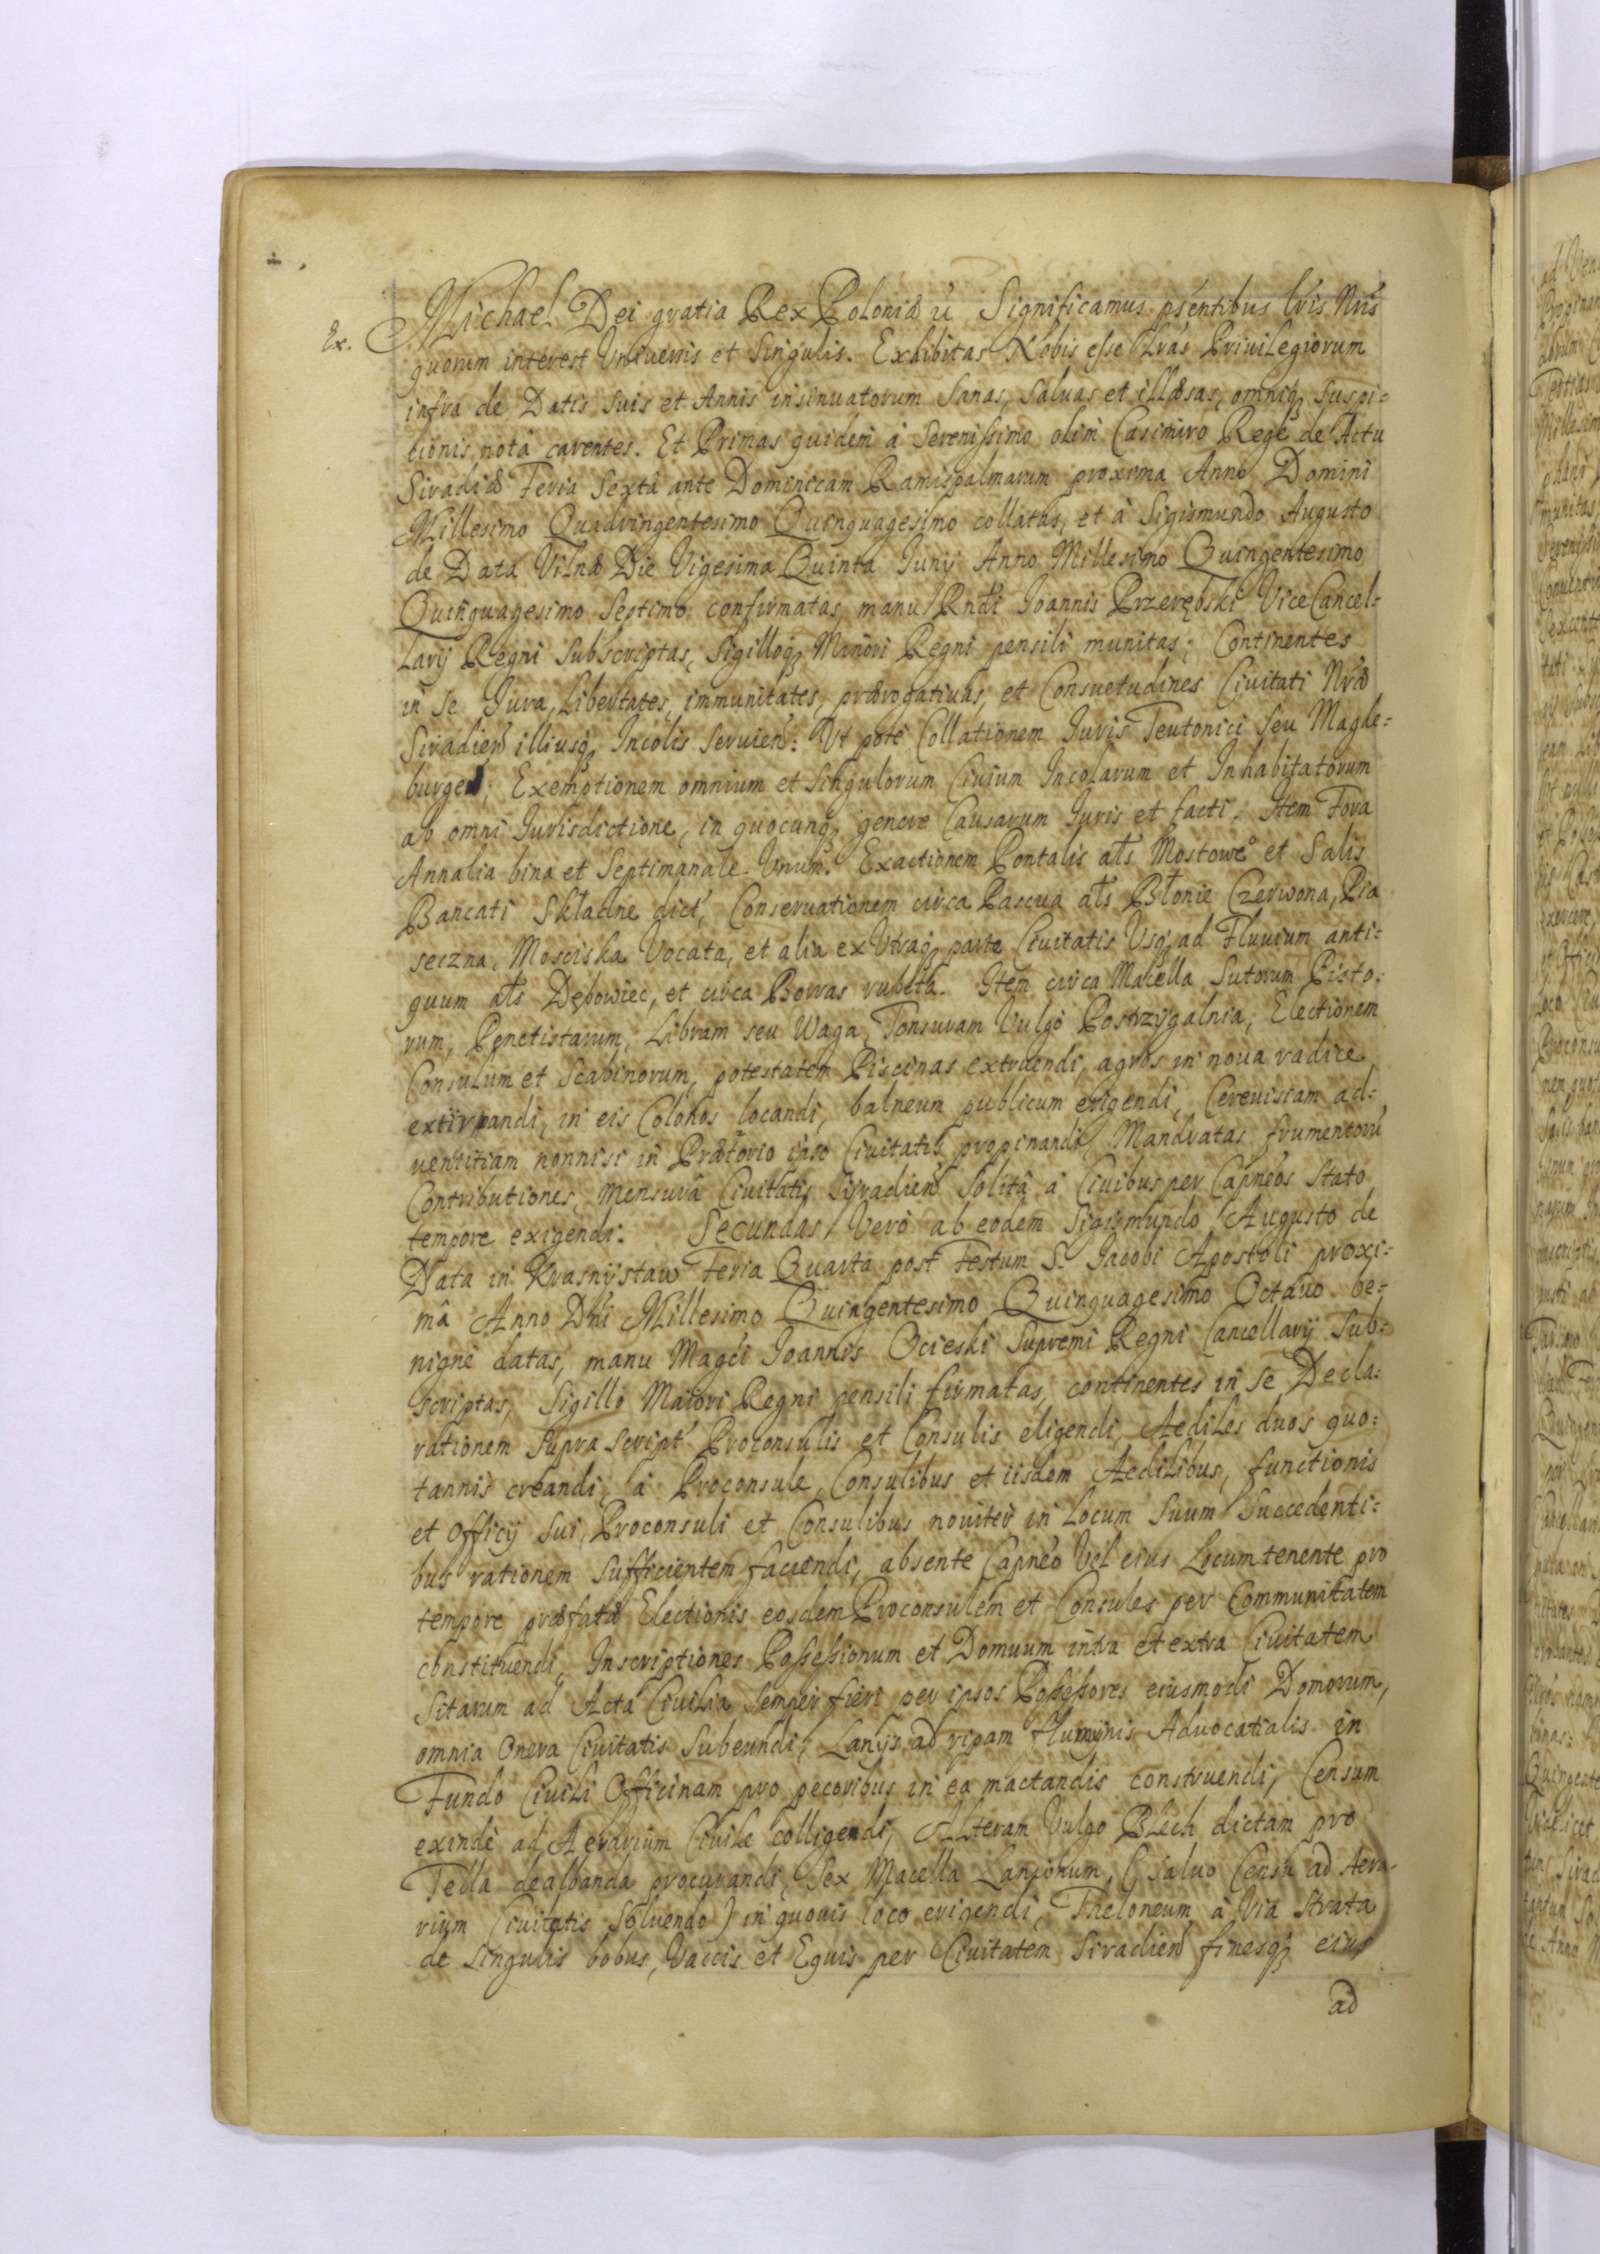 Ex.
Michael Dei gratia Rex Poloniæ &c Significamus pñtibus Lris Nris
quorum interest Vniuersis et Singulis. Exhibitas Nobis esse Lras Priuilegiorum
infra de Datis suis et Annis insinuatorum Sanas, Saluas et illæsas, omniq; suspi=
tionis notâ carentes. Et Primas quidem à Serenissimo olim Casimiro Rege de Actu
Siradiæ Feria Sexta ante Dominicam Ramispalmarum proxima Anno Domini
Millesimo Quadringentesimo Quinquagesimo collatas, et à Sigismundo Augusto
de Data Vilnæ Die Vigesima Quinta Iunij Anno Millesimo Quingentesimo
Quinquagesimo Septimo confirmatas, manu Rndi Joannis Przerębski ViceCancel=
larij Regni Subscriptas, Sigilloq; Minori Regni pensili munitas; Continentes
in se Jura, Libertates, immunitates, prærogatiuas, et Consuetudines Ciuitati Nræ
Siradien illiusq; Incolis Seruien: Vt pote Collationem Juris Teutonici Seu Magde=
burgen; Exemptionem omnium et Singulorum Ciuium Incolarum et Inhabitatorum
ab omni Jurisdictione, in quocunq; genere Causarum Juris et facti. Item Fora
Annalia bina et Septimanale Vnum. Exactionem Pontalis als Mostowe° et Salis
Bancati Składne dict, Conseruationem circa Pascua als Błonie Czerwona, Pia
seczna, Mosciska Vocata, et alia ex Vtraq; parte Ciuitatis Vsq; ad Fluuium anti=
quum als Dębowiec, et circa Borras rubeta. Item circa Macella Sutorum Pisto=
rum, Penetistarum, Libram seu Waga, Tonsuram Vulgo Postrzygalnia, Electionem
Consulum et Scabinorum, potestatem Piscinas extruendi, agros in noua radice
extirpandi, in eis Colonos locandi, balneum publicum erigendi, Cereuisiam ad=
uentitiam nonnisi in Prætorio ipso Ciuitatis propinandi, Mandratas frumentorũ
Contributiones, mensurâ Ciuitatis Siradien Solitâ à Ciuibus per Capneos Stato
tempore exigendi. Secundas Verò ab eodem Sigismundo Augusto de
Data in Krasnystaw Feria Quarta post Festum S. Jacobi Apostoli proxi=
mâ Anno Dni Millesimo Quingentesimo Quinquagesimo Octauo be=
nignè datas, manu Magci Joannis Ocieski Supremi Regni Cancellarij Sub=
scriptas, Sigillo Maiori Regni pensili firmatas, continentes in se Decla=
rationem supra script Proconsulis et Consulis eligendi, Aediles duos quo=
tannis creandi, à Proconsule, Consulibus et iisdem Aedilibus, functionis
et Officij Sui, Proconsuli et Consulibus nouiter in Locum Suum Succedenti=
bus rationem Sufficientem faciendi, absente Capneo Vel eius Locumtenente pro
tempore præfatæ Electionis eosdem Proconsulem et Consules per Communitatem
constituendi, Inscriptiones Possessionum et Domuum intra et extra Ciuitatem
Sitarum ad Acta Ciuilia Semper fieri per ipsos Possessores eiusmodi Domorum,
omnia Onera Ciuitatis Subeundi, Lanijs ad ripam fluminis Aduocatialis in
Fundo Ciuili Officinam pro pecoribus in ea mactandis construendi, Censum
exindè ad Aerarium Ciuile colligendi, Alteram Vulgo Blech dictam pro
Tella dealbanda procurandi, Sex Macella Lanionum, (Saluo Censu ad Aera=
rium Ciuitatis Soluendo) in quouis loco erigendi, Theloneum à Via Strata
de Singulis bobus, Vaccis et Equis per Ciuitatem Siradien finesq; eius
ad